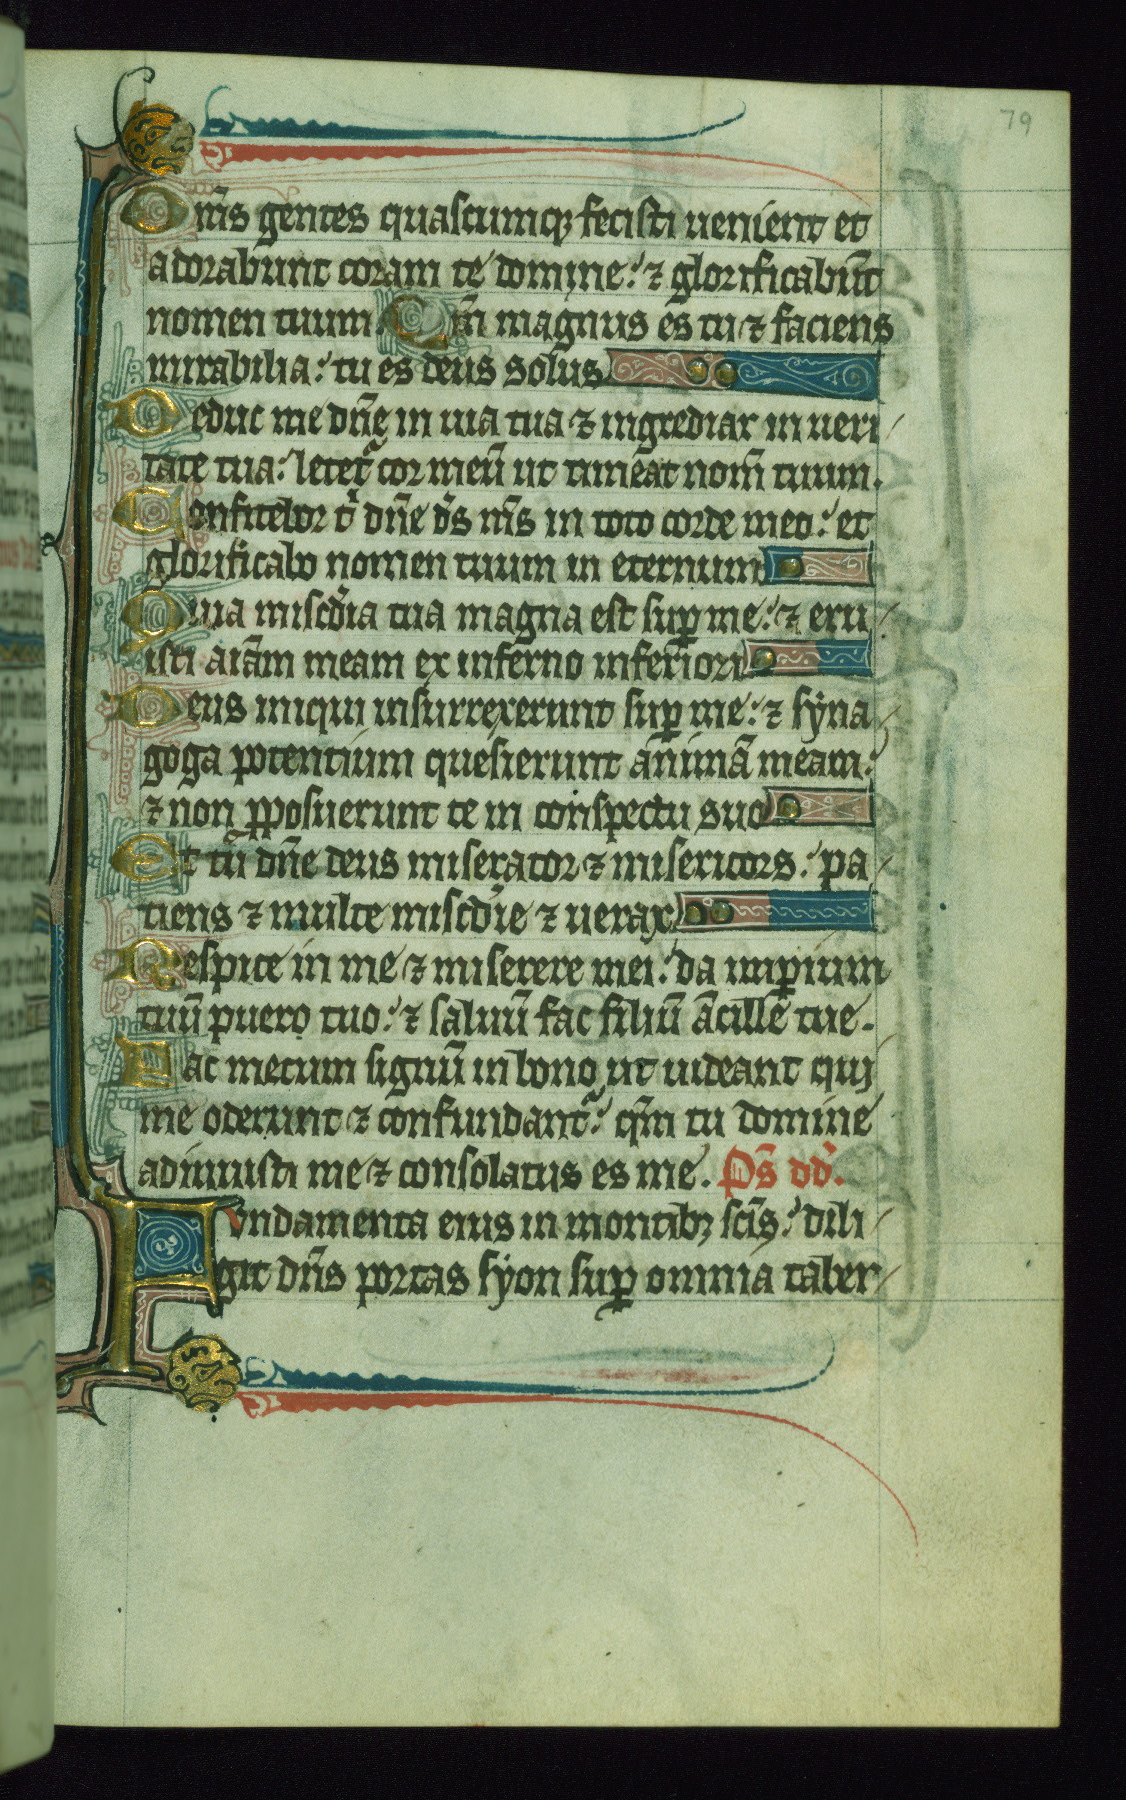 79
Om̅s gentes quascumq; fecisti uenient et
adorabunt coram te domine: ⁊ glorificabūt
nomen tuum. Qm̅ magnus es tu ⁊ faciens
mirabilia: tu es deus solus
Deduc me dn̅e in uia tua ⁊ ingrediar in ueri
tate tua: letet᷑ cor meū ut timeat nom̅ tuum.
Confitebor t̉ dn̅e d̅s m̅s in toto corde meo: et
glorificabo nomen tuum in eternum
Quia misc̅dia tua magna est sup̱ me: ⁊ eru
isti aīam meam ex inferno inferiori
Deus iniqui insurrexerunt sup̱ me: ⁊ syna
goga potentium quesierunt animā meam:
⁊ non p̱posuerunt te in conspectu suo
Et tū dn̅e deus miserator ⁊ misericors: pa
tiens ⁊ multe misc̅die ⁊ uerax
Respice in me ⁊ miserere mei: da imp̱ium
tuū puero tuo: ⁊ saluū fac filiū ācille tue.
Fac mecum signū in bono ut uideant qui
me oderunt ⁊ confundant᷑: qm̅ tu domine
adiuuisti me ⁊ consolatus es me. Ps̅ dd̅.
Fundamenta eius in montib; sc̅is: dili
git dn̅s portas syon sup̱ omnia taber